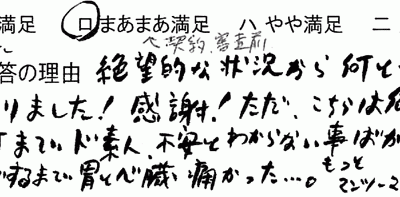 満足 ロ まあまあ満足 ハ やや満足 ニ
契約、審査前
答の理由 絶望的な状況から何と
りました！感謝！ただ、こちらは何
まで、ド素人、不安とわからない事ばか
するまで胃と心臓痛かった…。もっと
マンツーマ